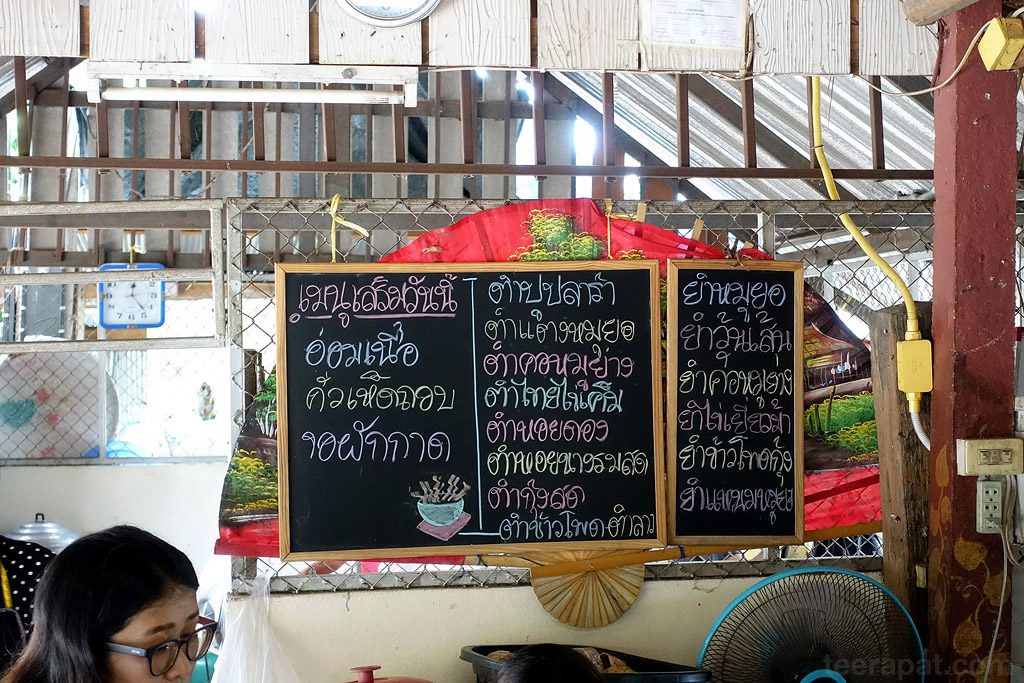 เมนูเสริมวันนี้
อ่อมเนื้อ
คั่วเห็ดถอบ
จอผักกาด
ตำปูปลาร้า
ตำแตงหมูยอ
ตำคอหมูย่าง
ตำไทยไข่เค็ม
ตำหอยดอง
ตำหอยนางรมสด
ตำกุ้งสด
ตำข้าวโพด-ตำลาว
ยำหมูยอ
ยำวุ้นเส้น
ยำคอหมูย่าง
ยำไข่เยี่ยวม้า
ยำข้าวโพดกุ้ง
ยำแหนมหมูยอ
teerapat.com